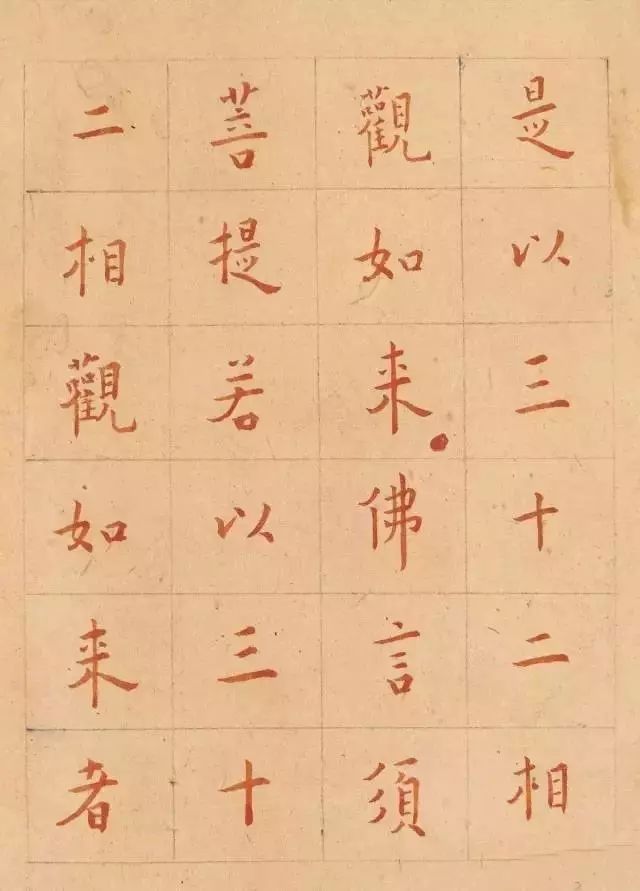 是以三十二相
觀如来佛言須
菩提若以三十
二相觀如来者